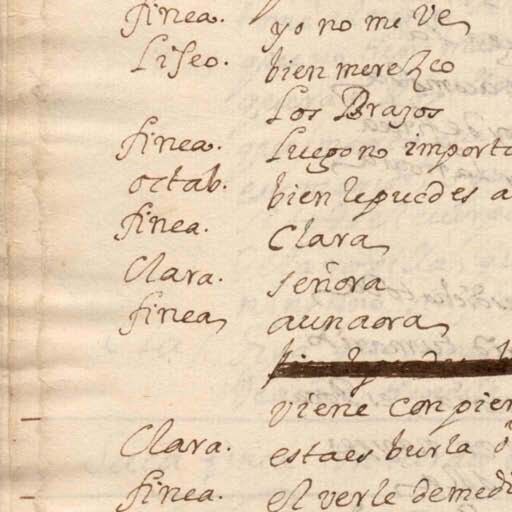 finea. yo no me ve
Liseo. bien merezco
Los Brazos
finea. Luego no importa
octab. bien le puedes a
finea. Clara
Clara. señora
finea aun aora
viene con pien
Clara. esta es burla o
finea. el verle de medi